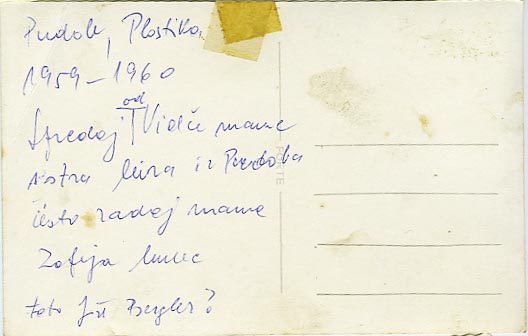 Pudob, Plastika,
1959-1960
Spredaj od Vidče mame
sestra Mira iz Pudoba
čisto zadaj mama
Zofija
foto Bergles?